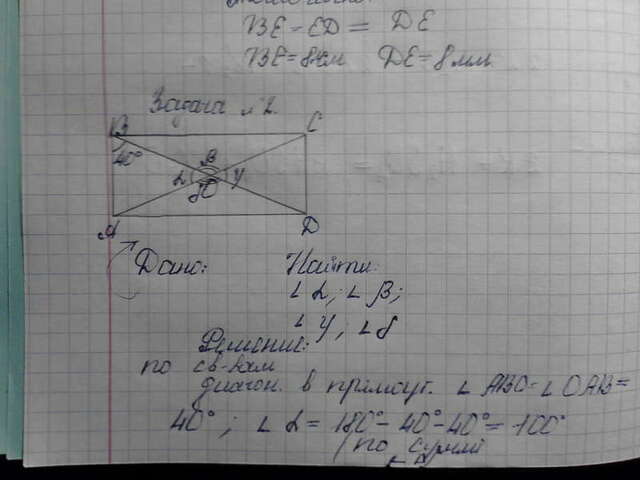 BE = ED = DE
BE = 8 см DE = 8 мм
Задача №2.
B C
40° β
α γ
δ O
A D
Дано: Найти:
∠α; ∠β;
∠γ, ∠δ
Решение:
по св-вам
диагон. в прямоуг. ∠ABO=∠OAB=
40°; ∠α = 180°-40°-40°=100°
(по сумме